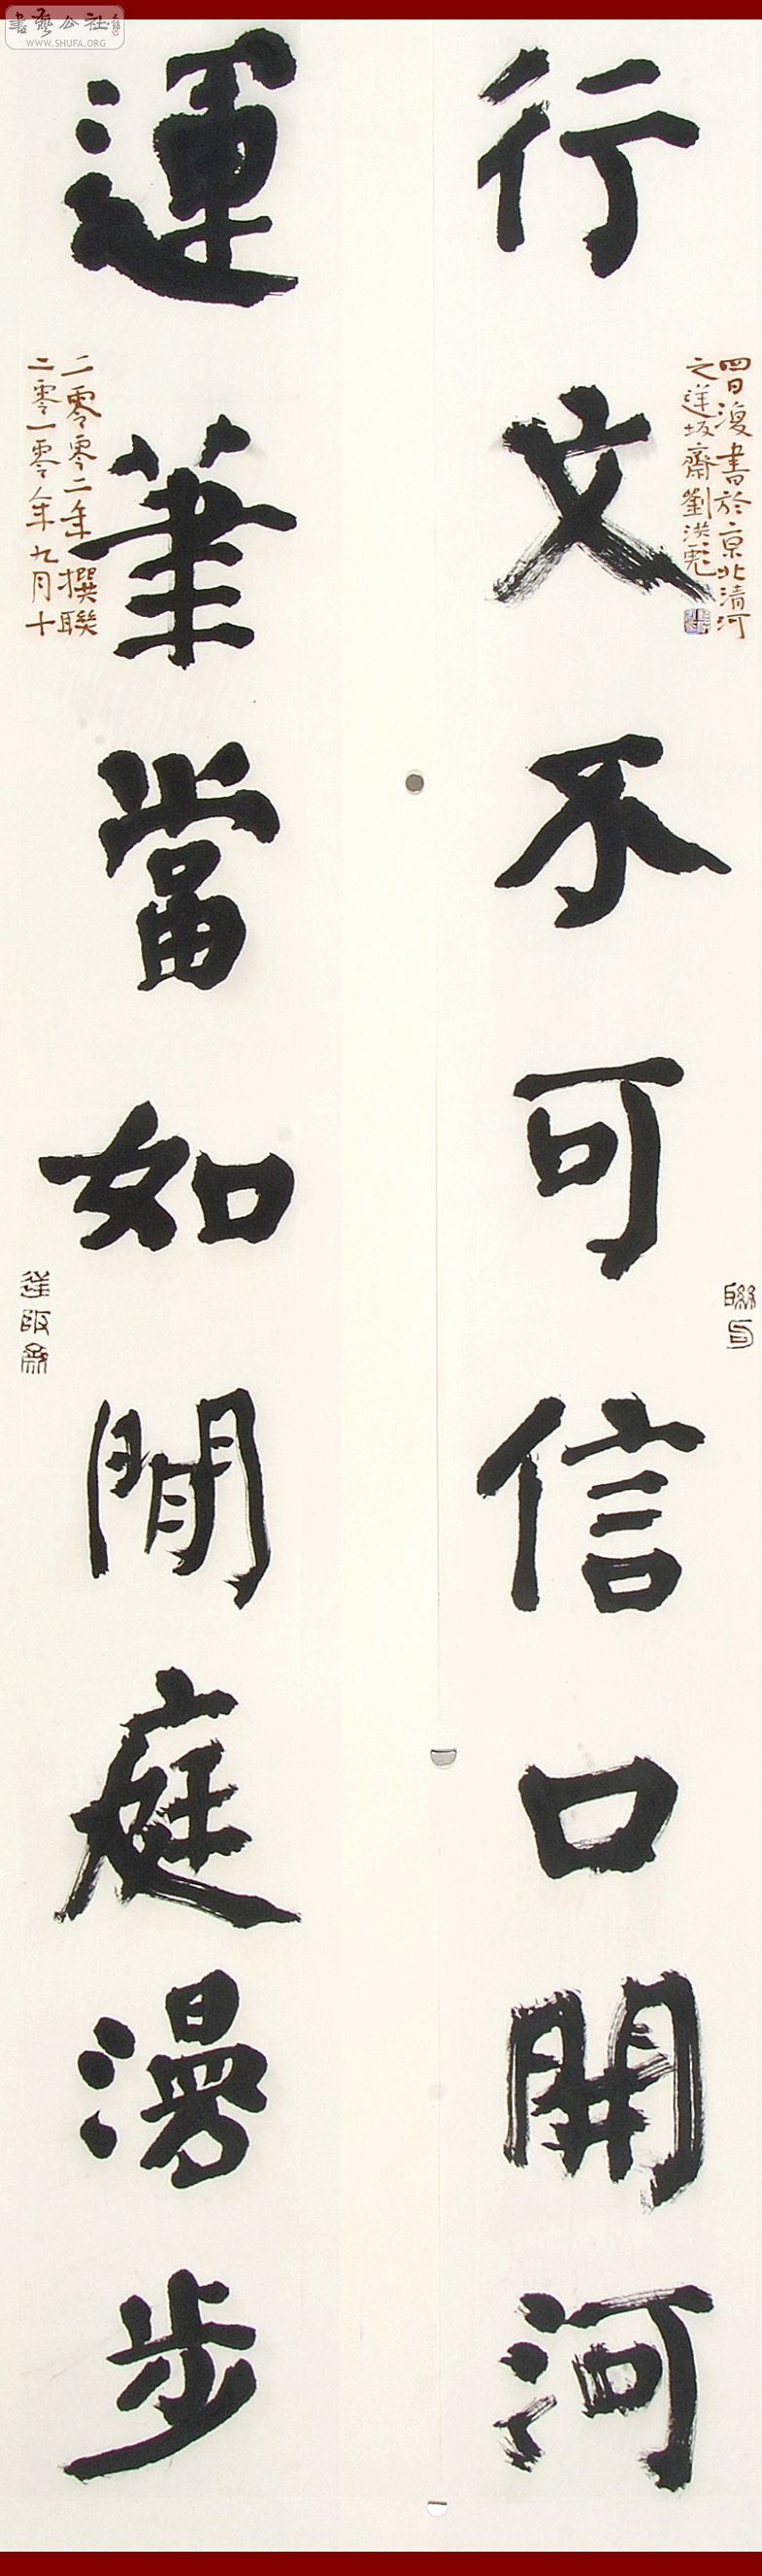 行文不可信口開河
運筆當如閒庭漫步
二零零二年撰聯
二零一零年九月十
四日復書於京北清河
之逆坂齋劉洪彪
聯句
書藝公社
WWW.SHUFA.ORG